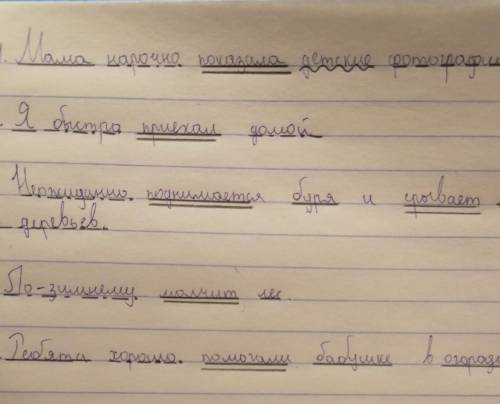 1. Мама нарочно показала детские фотографии
Я быстро приехал домой
Неожиданно поднимается буря и срывает
деревьев.
По-зимнему молчит лес.
Ребята хорошо помогали бабушке в огороде